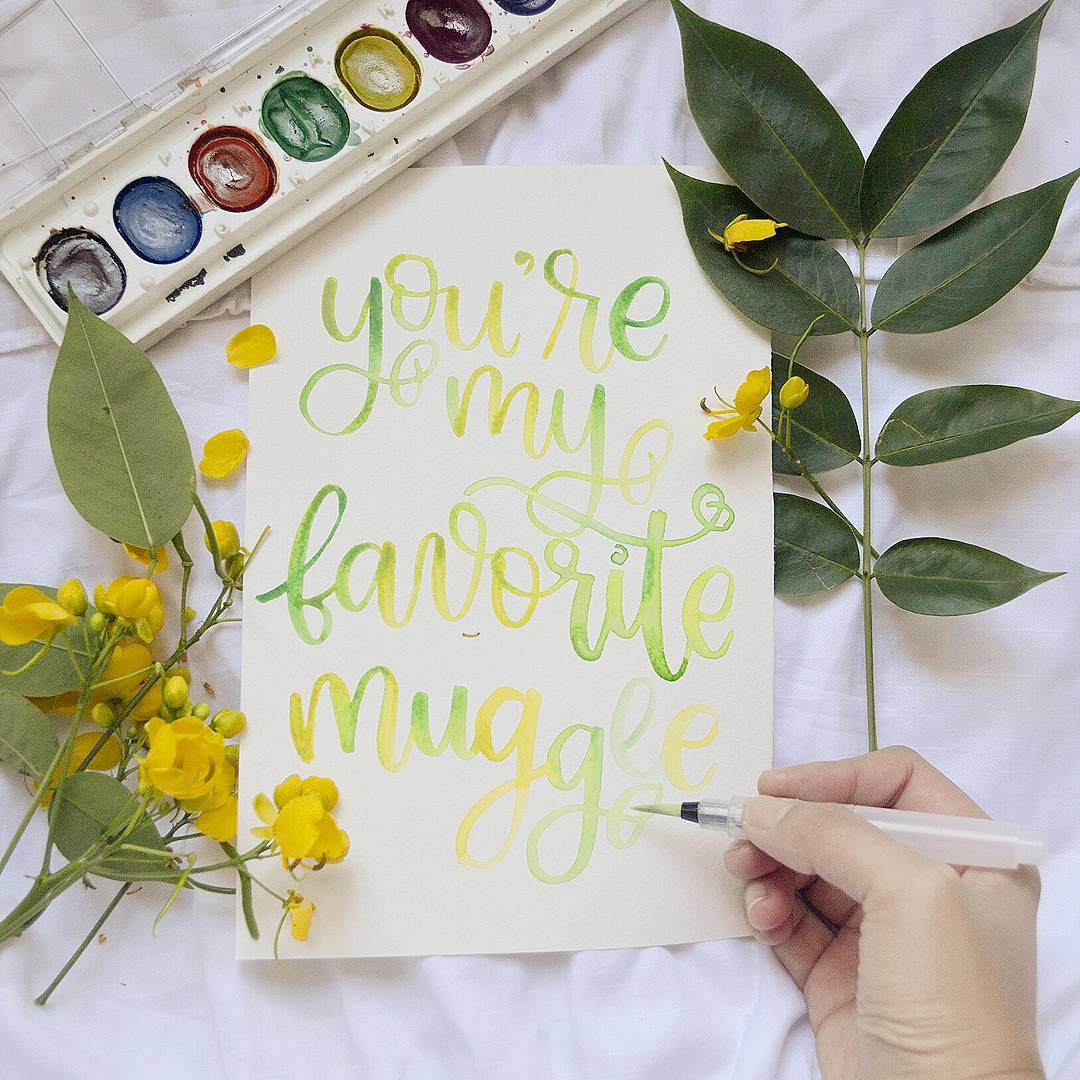 you're
my
favorite
muggle